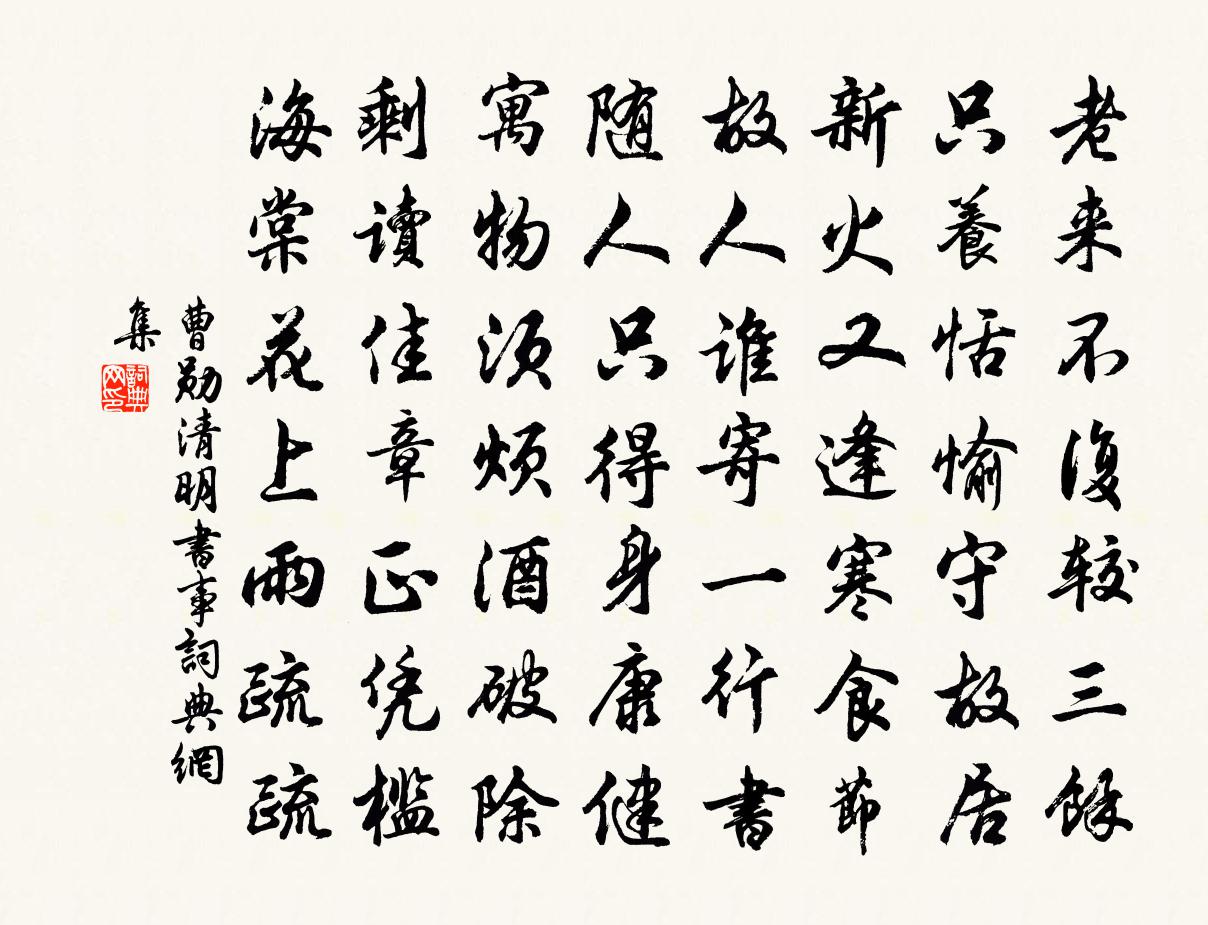 老来不復較三餘
只養恬愉守故居
新火又逢寒食節
故人誰寄一行書
随人只得身康健
寓物須煩酒破除
剩讀佳章正凭檻
海棠花上雨疏疏
曹勛清明書事詞典網
集
詞典网印